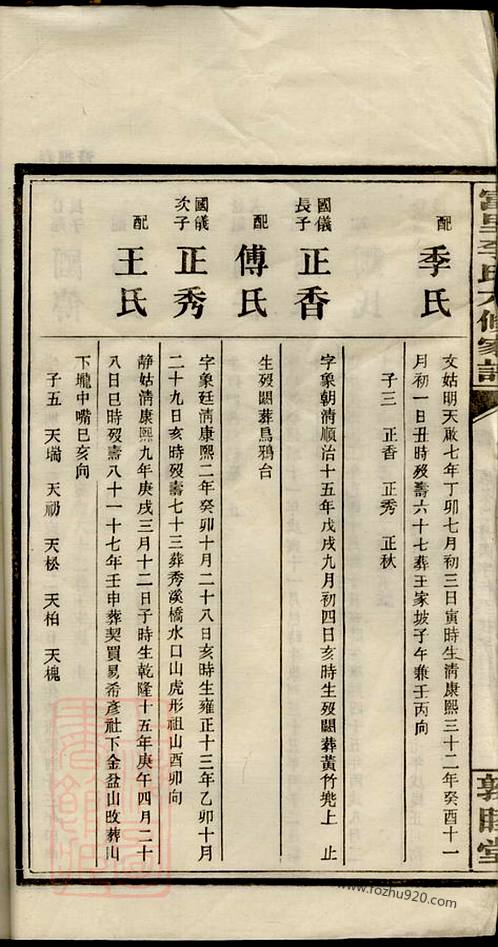 配
季氏
文姑明天啟七年丁卯七月初三日寅時生清康熙三十二年癸酉十一
月初一日丑時歿壽六十七葬王家坡子午兼壬丙向
子三 正香 正秀 正秋
國儀
長子
正香
字象朝清順治十五年戊戌九月初四日亥時生歿闕葬黃竹兠上 止
配
傅氏
生歿闕葬烏鴉台
國儀
次子
正秀
字象廷清康熙二年癸卯十月二十八日亥時生雍正十三年乙卯十月
二十九日亥時歿壽七十三葬秀溪橋水口山虎形祖山酉卯向
配
王氏
静姑清康熙九年庚戌三月十二日子時生乾隆十五年庚午四月二十
八日巳時歿壽八十一十七年壬申葬契買易希彥社下金盆山改葬山
下壠中嘴巳亥向
子五 天瑞 天礽 天松 天柏 天槐
李氏六修家譜
敦睦堂
www.rozhu920.com